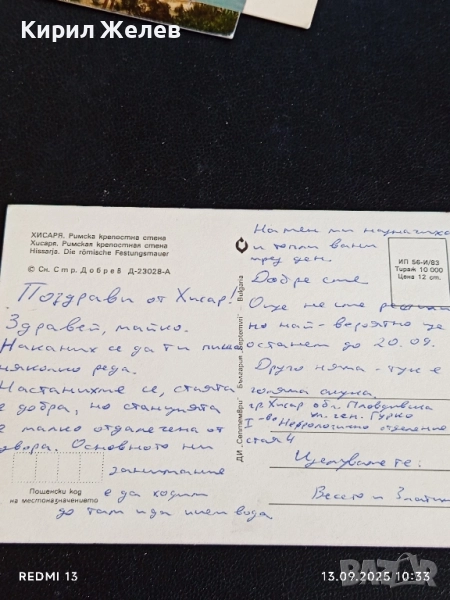 Кирил Желев
ХИСАРЯ. Римска крепостна стена
Хисаря. Римская крепостная стена
Hissarja. Die römische Festungsmauer
© Сн. Стр. Добрев Д-23028-А
Поздрави от Хисар!
Здравей, майко.
Наканих се да ти пиша
няколко реда.
Настанихме се, стаята
е добра, но станцията
е малко отдалечена от
двора. Основното ни
занимание
е да ходим
до там и да пием вода
Пощенски код
на местоназначението
ДИ „Септември“ България „Септември“ Bulgaria
На мен ми назначиха
и топли вани
през ден.
Добре сме
Още не сме
но най-вероятно ще
останем до 20.09.
Друго няма - тук е
голяма скука.
гр. Хисар обл. Пловдивска
ул. ген. Гурко
I-во Неврологично отделение
стая 4
Целуваме те:
Весето и
ИП 56-И/83
Тираж 10 000
Цена 12 ст.
BAZAR
REDMI 13
13.09.2025 10:33